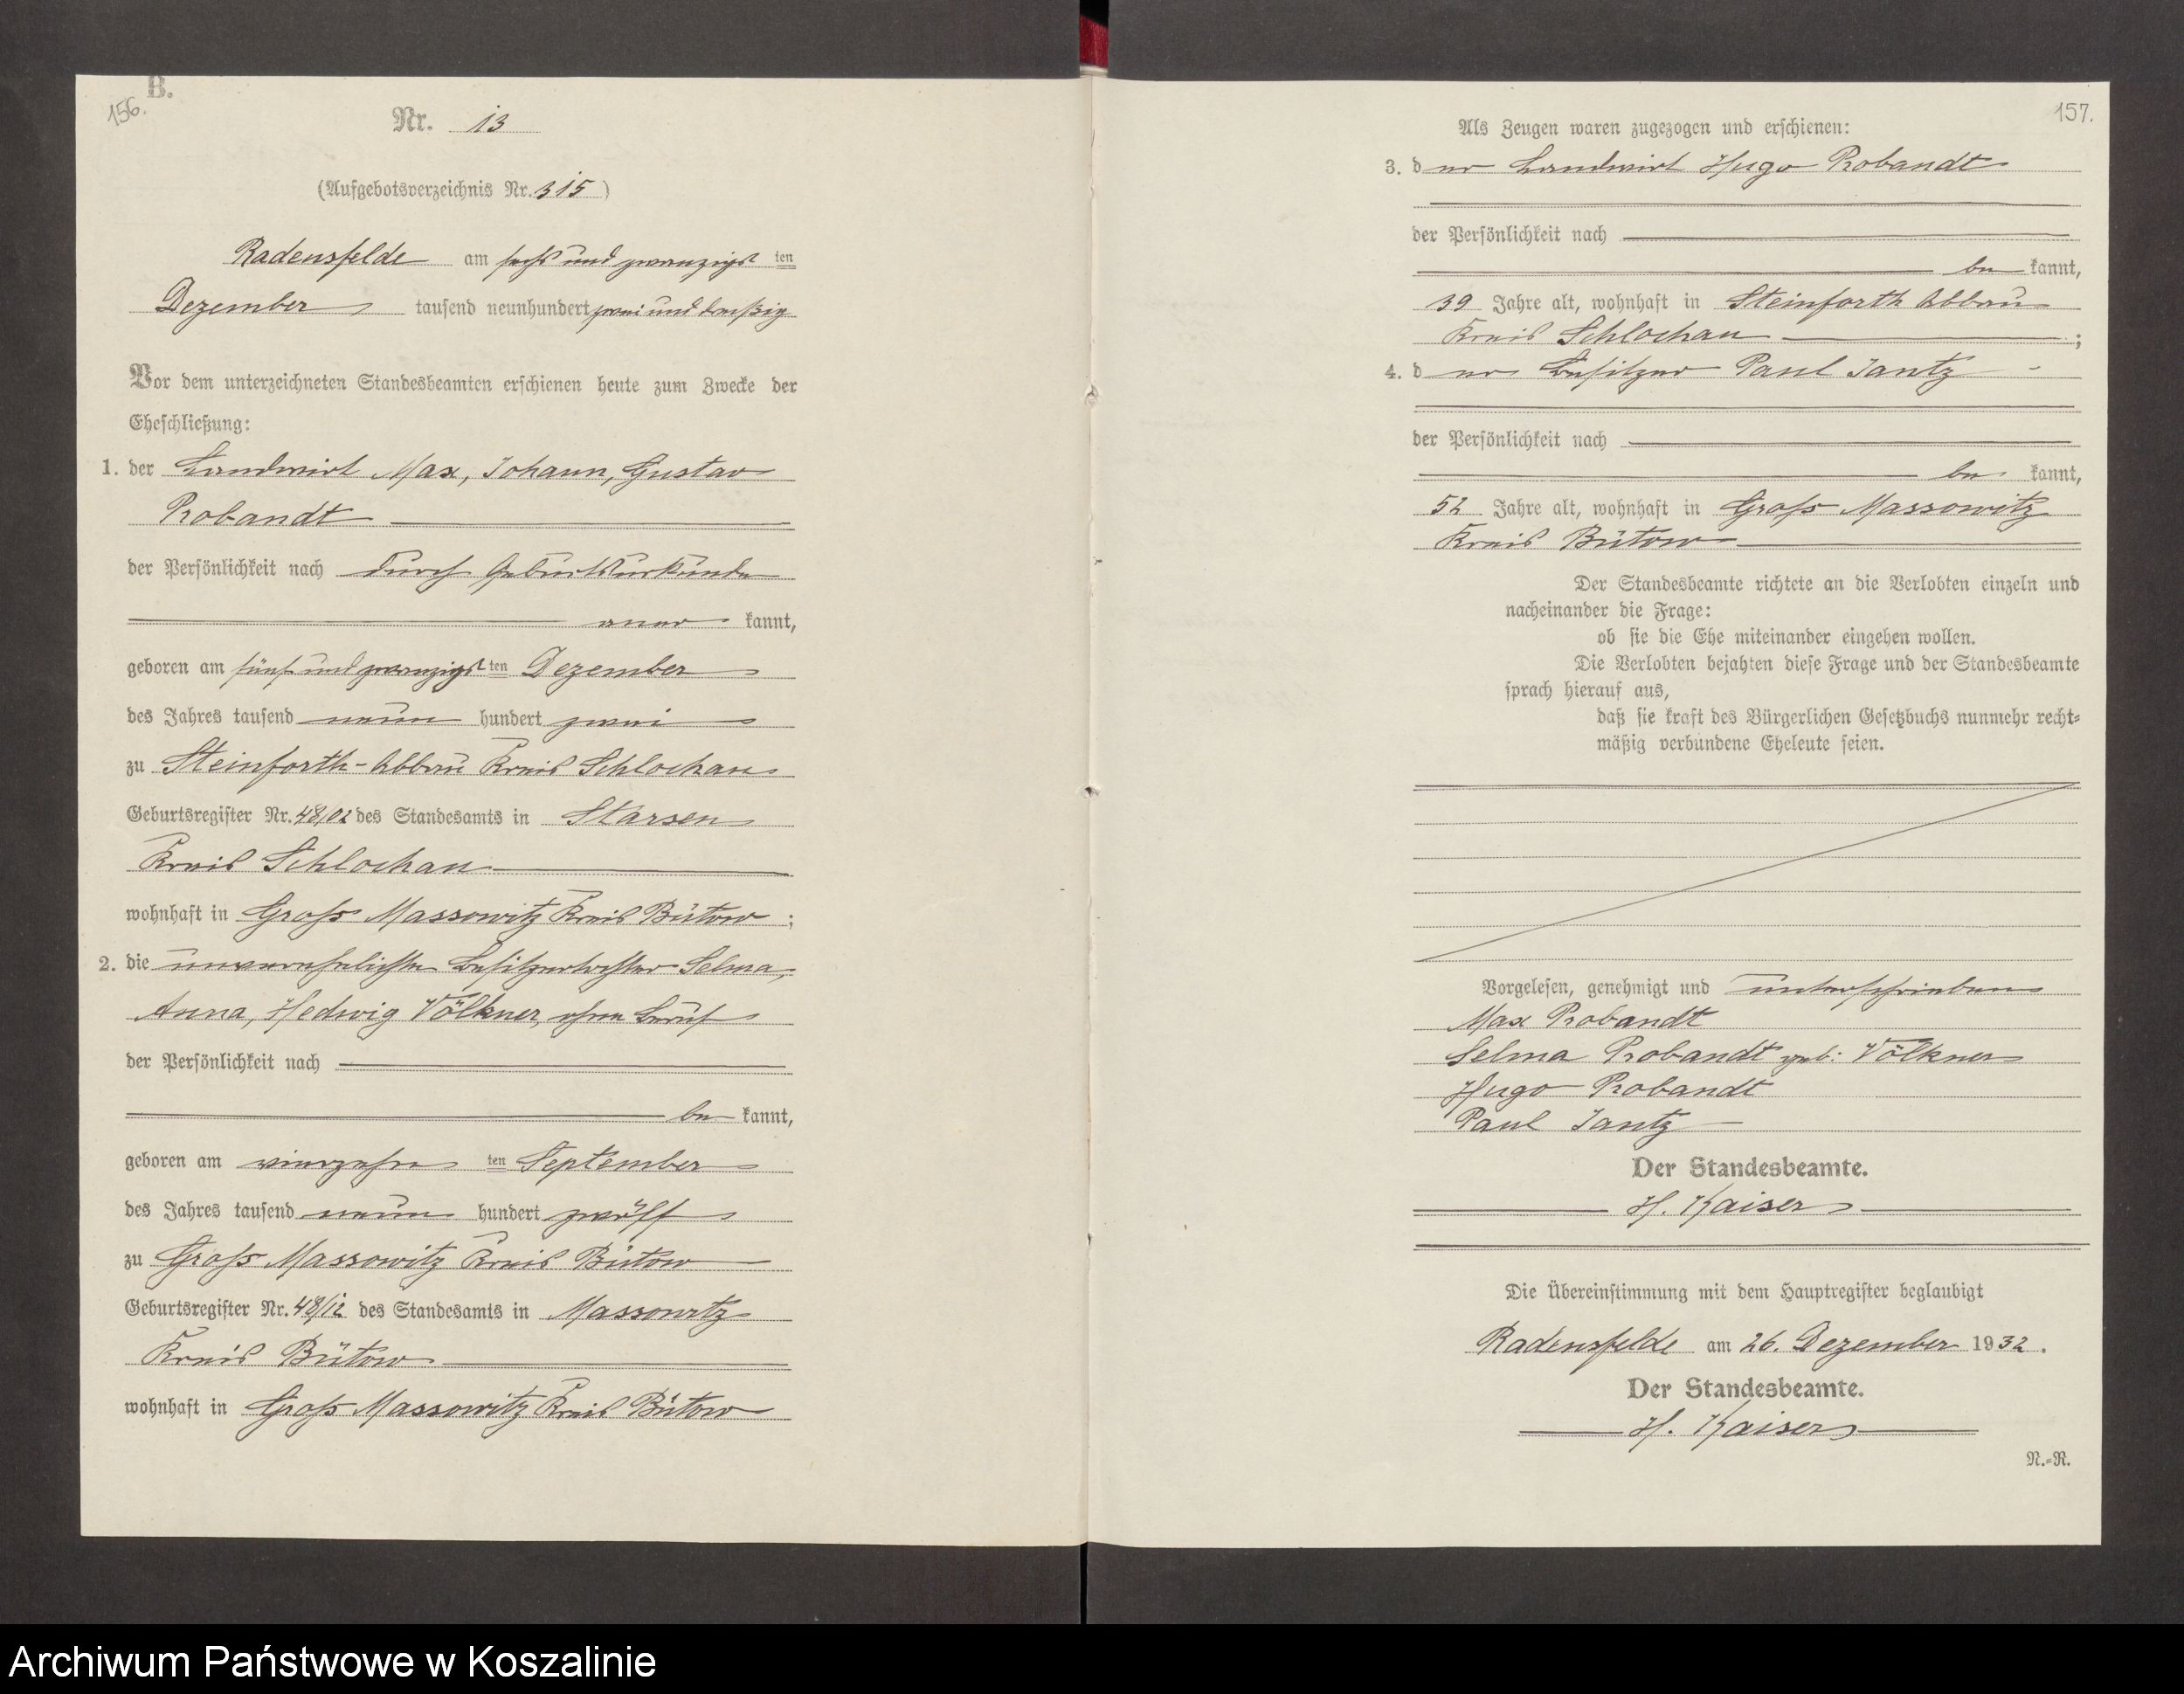 156.
B.
Nr. 13
(Aufgebotsverzeichnis Nr. 315)
Radensfelde am sechs und zwanzigsten
Dezember tausend neunhundert zwei und dreißig
Vor dem unterzeichneten Standesbeamten erschienen heute zum Zwecke der
Eheschließung:
1. der Landwirt Max, Johann, Gustav
Probandt
der Persönlichkeit nach durch Geburtsurkunde
aner kannt,
geboren am fünf und zwanzigsten Dezember
des Jahres tausend neun hundert zwei
zu Steinforth-Abbau Kreis Schlochau
Geburtsregister Nr. 48/02 des Standesamts in Starsen
Kreis Schlochau
wohnhaft in Groß Massowitz Kreis Bütow;
2. die unverehelichte Besitzertochter Selma,
Anna, Hedwig Völkner, ohne Beruf
der Persönlichkeit nach
be kannt,
geboren am vierzehn ten September
des Jahres tausend neun hundert zwölf
zu Groß Massowitz Kreis Bütow
Geburtsregister Nr. 48/12 des Standesamts in Massowitz
Kreis Bütow
wohnhaft in Groß Massowitz Kreis Bütow
157.
Als Zeugen waren zugezogen und erschienen:
3. der Landwirt Hugo Probandt
der Persönlichkeit nach
be kannt,
39 Jahre alt, wohnhaft in Steinforth Abbau
Kreis Schlochau;
4. der Besitzer Paul Jantz
der Persönlichkeit nach
be kannt,
52 Jahre alt, wohnhaft in Groß Massowitz
Kreis Bütow
Der Standesbeamte richtete an die Verlobten einzeln und
nacheinander die Frage:
ob sie die Ehe miteinander eingehen wollen.
Die Verlobten bejahten diese Frage und der Standesbeamte
sprach hierauf aus,
daß sie kraft des Bürgerlichen Gesetzbuchs nunmehr recht=
mäßig verbundene Eheleute seien.
Vorgelesen, genehmigt und unterschrieben
Max Probandt
Selma Probandt geb: Völkner
Hugo Probandt
Paul Jantz
Der Standesbeamte.
H. Kaiser
Die Übereinstimmung mit dem Hauptregister beglaubigt
Radensfelde am 26. Dezember 1932.
Der Standesbeamte.
H. Kaiser
N.=R.
Archiwum Państwowe w Koszalinie